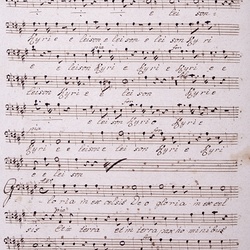 e lei son
Kyri e e leison e leison e lei son Ky ri
e e leison Kyri e Kyri e Kyri e e
leison Kyri e lei son Kyri e
Kyri e e leison e lei son Kyri
e e lei son
Gloria in excelsis Deo gloria in excel
sis et in terra et in terra pax ho minibus